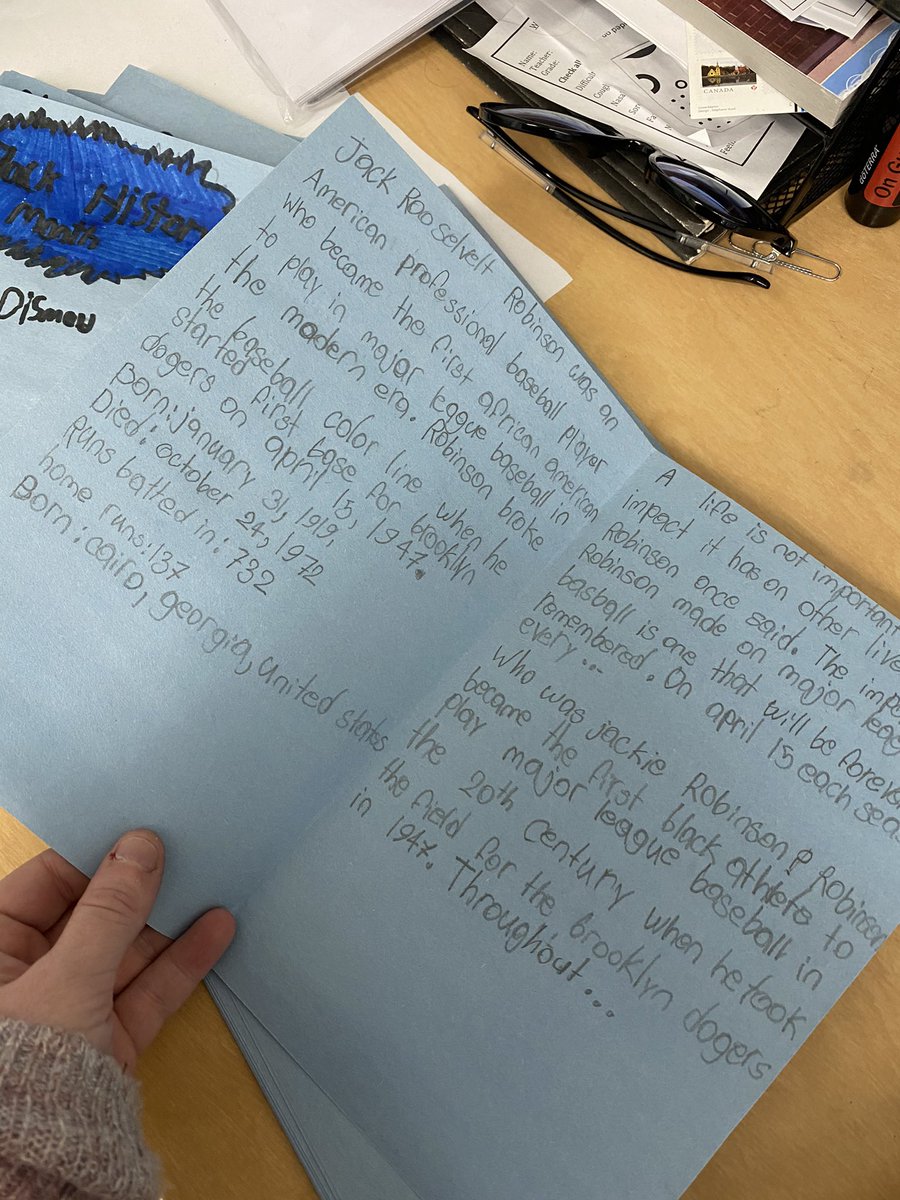 Histor
month
Dismou
Jack Roosevelt Robinson was an
American professional baseball player
who became the first african american
to play in major league baseball in
the modern era. Robinson broke
the baseball color line when he
started first base for brooklyn
dogers on april 15, 1947.
Born: january 31, 1919,
Died: october 24, 1972
Runs batted in: 732
home runs: 137
Born: cairo, georgia, united states
A life is not important
impact it has on other live
Robinson once said. The impa
Robinson made on major leag
basball is one that will be foreve
remembered. On april 15 each seas
every...
who was jackie Robinson? Robinson
became the first black athlete to
play major league baseball in
the 20th century when he took
the field for the Brooklyn dogers
in 1947. Throughout...
W
Name:
Teacher:
Grade:
Check all
Difficult
Coug
Nasa
Sor
Fa
CANADA
P
doTERRA
On Gu